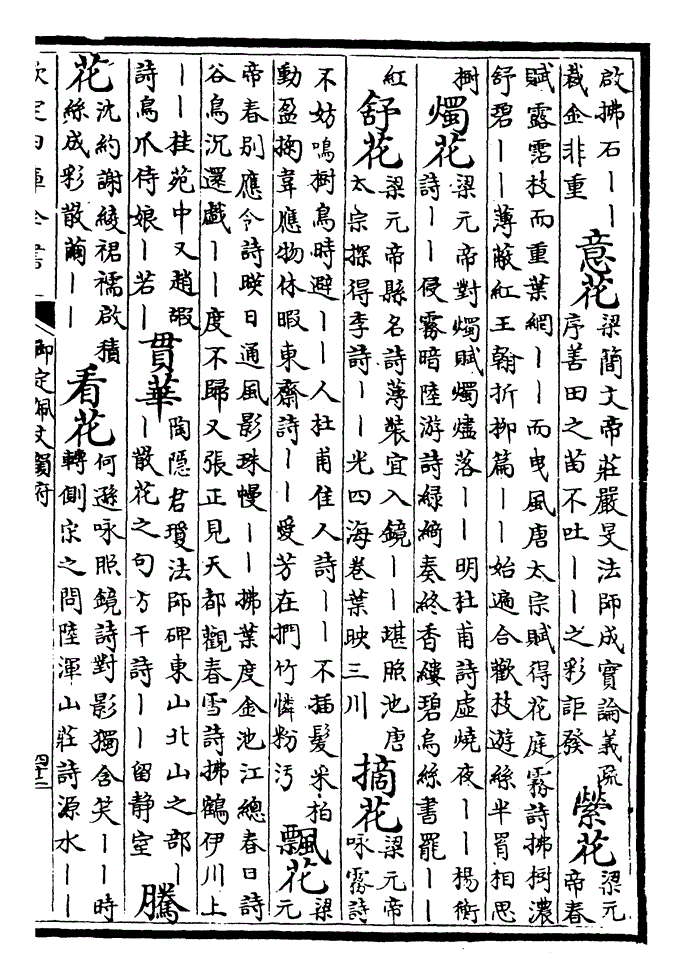 啟拂石｜｜
裁金非重
意花
梁簡文帝莊嚴旻法師成實論義疏
序善田之苗不吐｜｜之彩詎發
縈花
梁元
帝春
賦露霑枝而重葉網｜｜而曳風唐太宗賦得花庭霧詩拂樹濃
舒碧｜｜薄蔽紅王翰折柳篇｜｜始遍合歡枝遊絲半罥相思
樹
燭花
梁元帝對燭賦燭燼落｜｜明杜甫詩虛燒夜｜｜楊衡
詩｜｜侵霧暗陸游詩綠綺奏終香縷碧烏絲書罷｜｜
紅
舒花
梁元帝縣名詩薄裝宜入鏡｜｜堪照池唐
太宗探得李詩｜｜光四海卷葉映三川
摘花
梁元帝
咏霧詩
不妨鳴樹鳥時避｜｜人杜甫佳人詩｜｜不插髮采柏
動盈掬韋應物休暇東齋詩｜｜愛芳在捫竹憐粉汚
飄花
梁
元
帝春别應令詩暎日通風影珠幔｜｜拂葉度金池江總春日詩
谷鳥沉還戲｜｜度不歸又張正見天都觀春雪詩拂鶴伊川上
｜｜桂苑中又趙嘏
詩鳥爪侍娘｜若｜
貫華
陶隱君瓊法師碑東山北山之部｜
｜散花之句方干詩｜｜留静室
騰
花
沈約謝綾裙襦啟積
絲成彩散繭｜｜
看花
何遜咏照鏡詩對影獨含笑｜｜時
轉側宋之問陸渾山莊詩源水｜｜
欽定四庫全書
御定佩文韻府
四十二